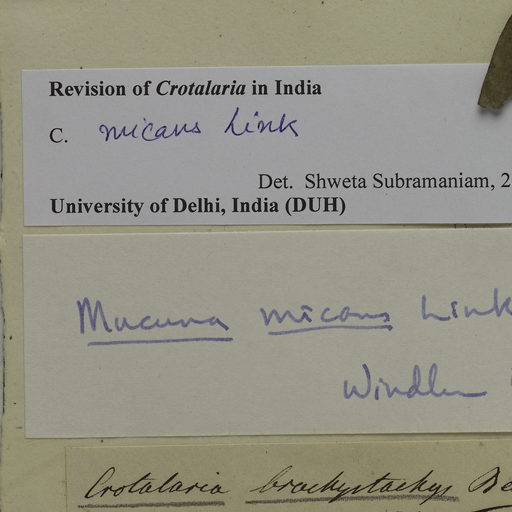 Revision of Crotalaria in India
C. micans Link
Det. Shweta Subramaniam, 2
University of Delhi, India (DUH)
Mucuna micans Link
Windler
Crotalaria brachystachys Be